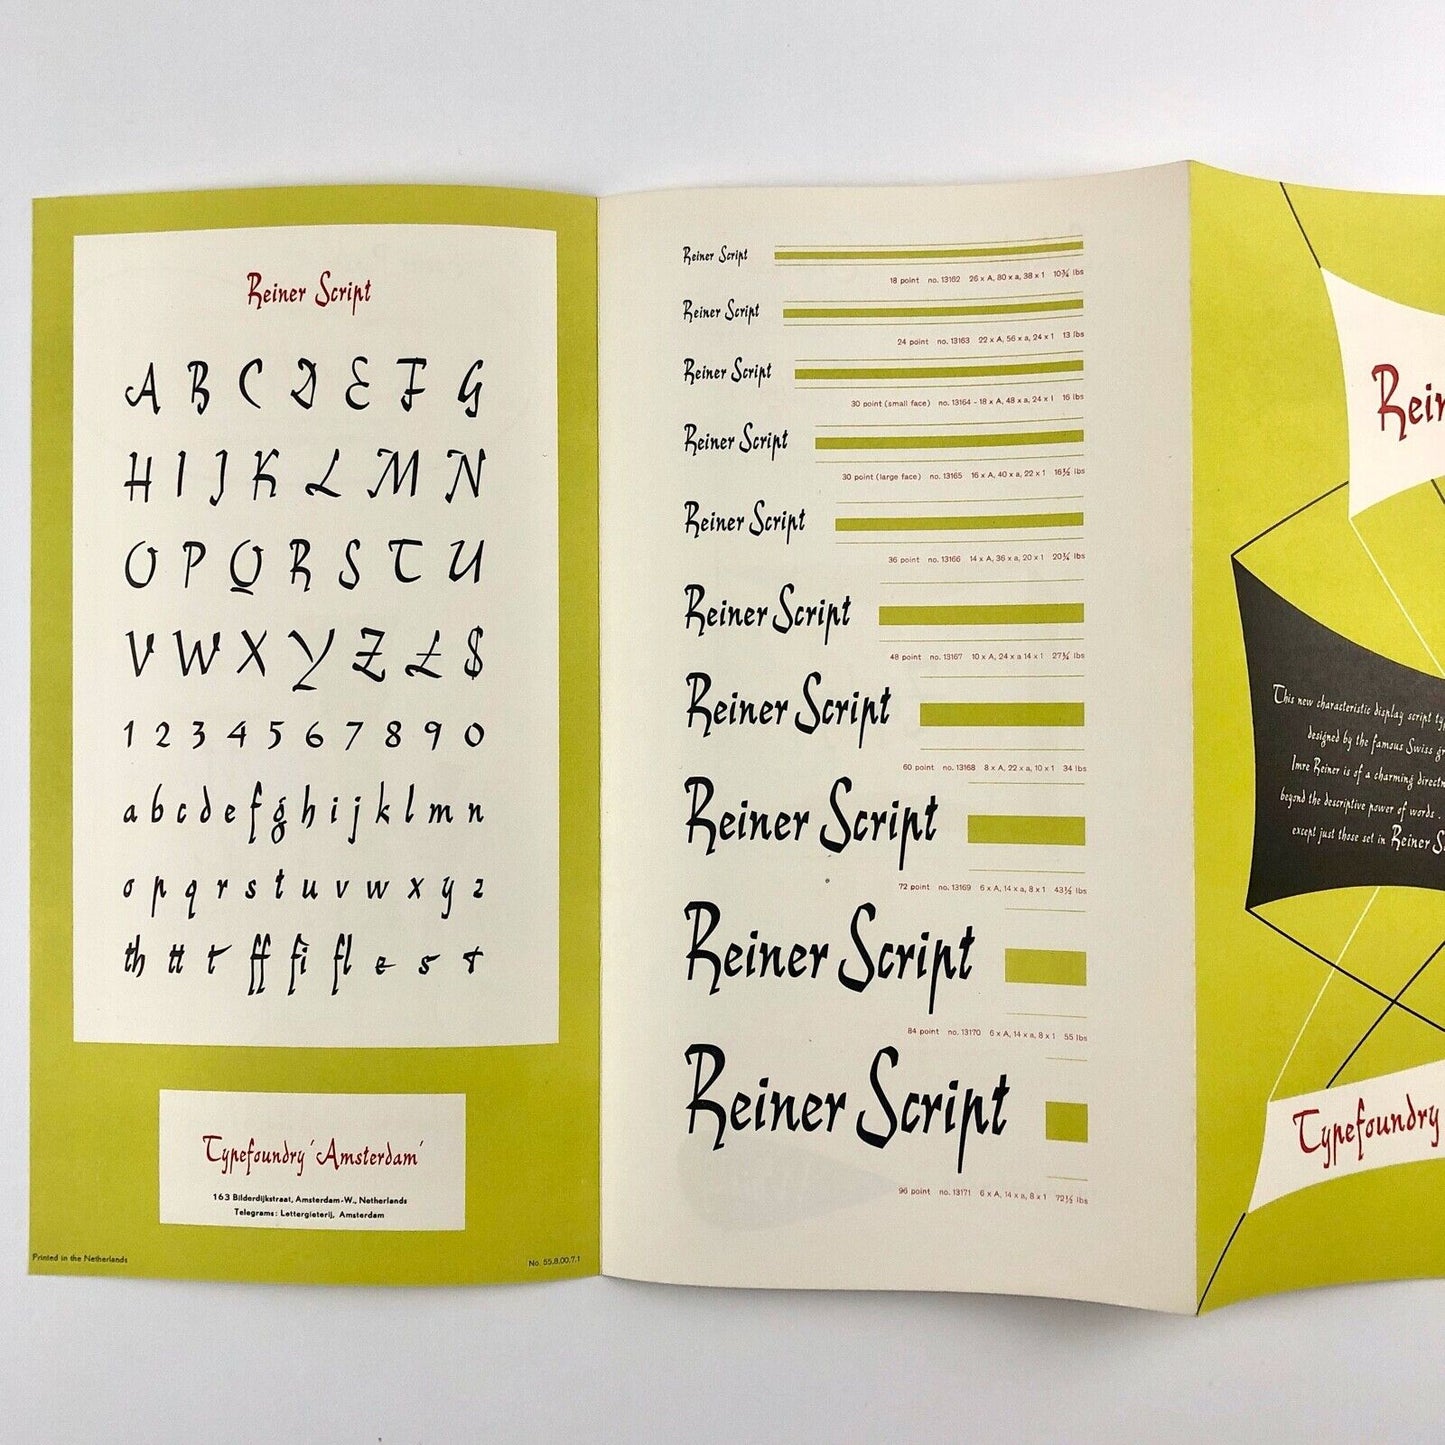 Reiner Script
A B C D E F G
H I J K L M N
O P Q R S T U
V W X Y Z £ $
1 2 3 4 5 6 7 8 9 0
a b c d e f g h i j k l m n
o p q r s t u v w x y z
th tt t ff fi fl e s t
Typefoundry ‘Amsterdam’
163 Bilderdijkstraat, Amsterdam-W., Netherlands
Telegrams: Lettergieterij, Amsterdam
Printed in the Netherlands
No. 55.8.00.7.1
Reiner Script
18 point no. 13162 26 x A, 80 x a, 38 x 1 10¾ lbs
Reiner Script
24 point no. 13163 22 x A, 56 x a, 24 x 1 13 lbs
Reiner Script
30 point (small face) no. 13164 - 18 x A, 48 x a, 24 x 1 16 lbs
Reiner Script
30 point (large face) no. 13165 16 x A, 40 x a, 22 x 1 16½ lbs
Reiner Script
36 point no. 13166 14 x A, 36 x a, 20 x 1 20¾ lbs
Reiner Script
48 point no. 13167 10 x A, 24 x a 14 x 1 27¾ lbs
Reiner Script
60 point no. 13168 8 x A, 22 x a, 10 x 1 34 lbs
Reiner Script
72 point no. 13169 6 x A, 14 x a, 8 x 1 43½ lbs
Reiner Script
84 point no. 13170 6 x A, 14 x a, 8 x 1 55 lbs
Reiner Script
96 point no. 13171 6 x A, 14 x a, 8 x 1 72½ lbs
Rein
This new characteristic display script typ
designed by the famous Swiss gr
Imre Reiner is of a charming directn
beyond the descriptive power of words .
except just those set in Reiner S
Typefoundry